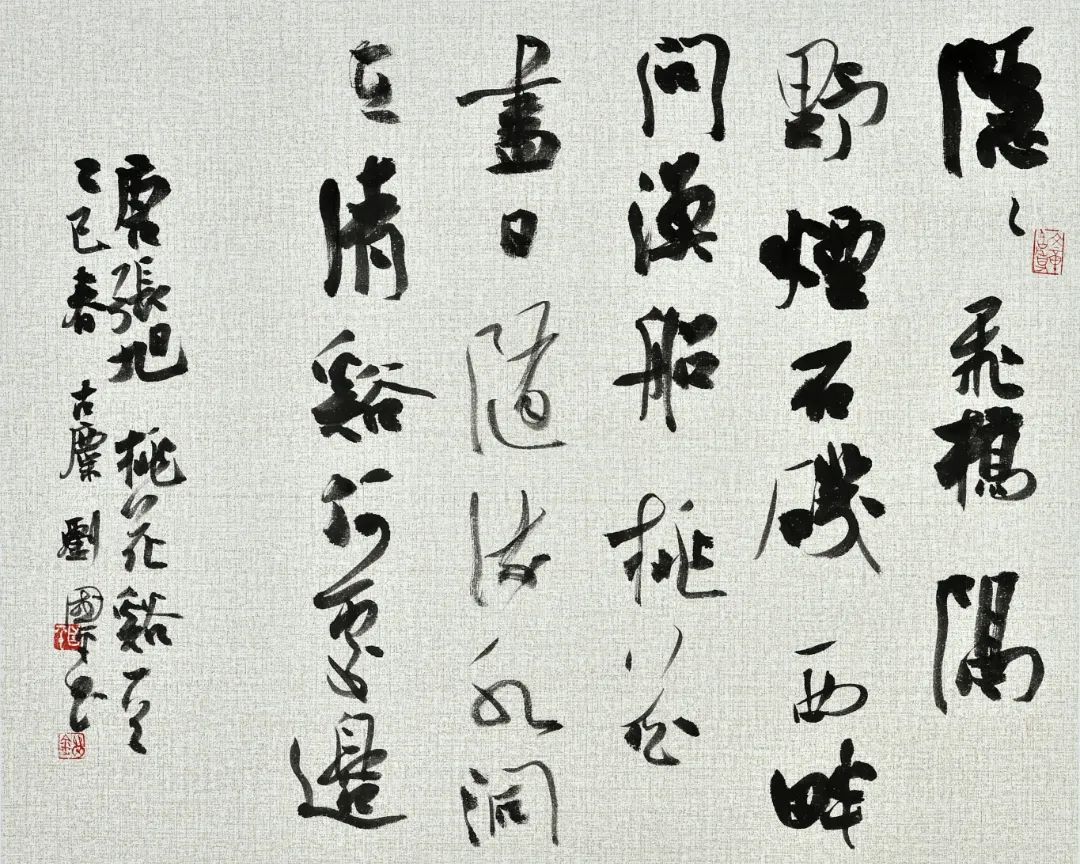 隱〻飛橋隔
野煙石磯西畔
問漁船桃花
盡日隨流水洞
在清谿何處邊
唐張旭桃花谿一首
乙巳春古麇劉國书